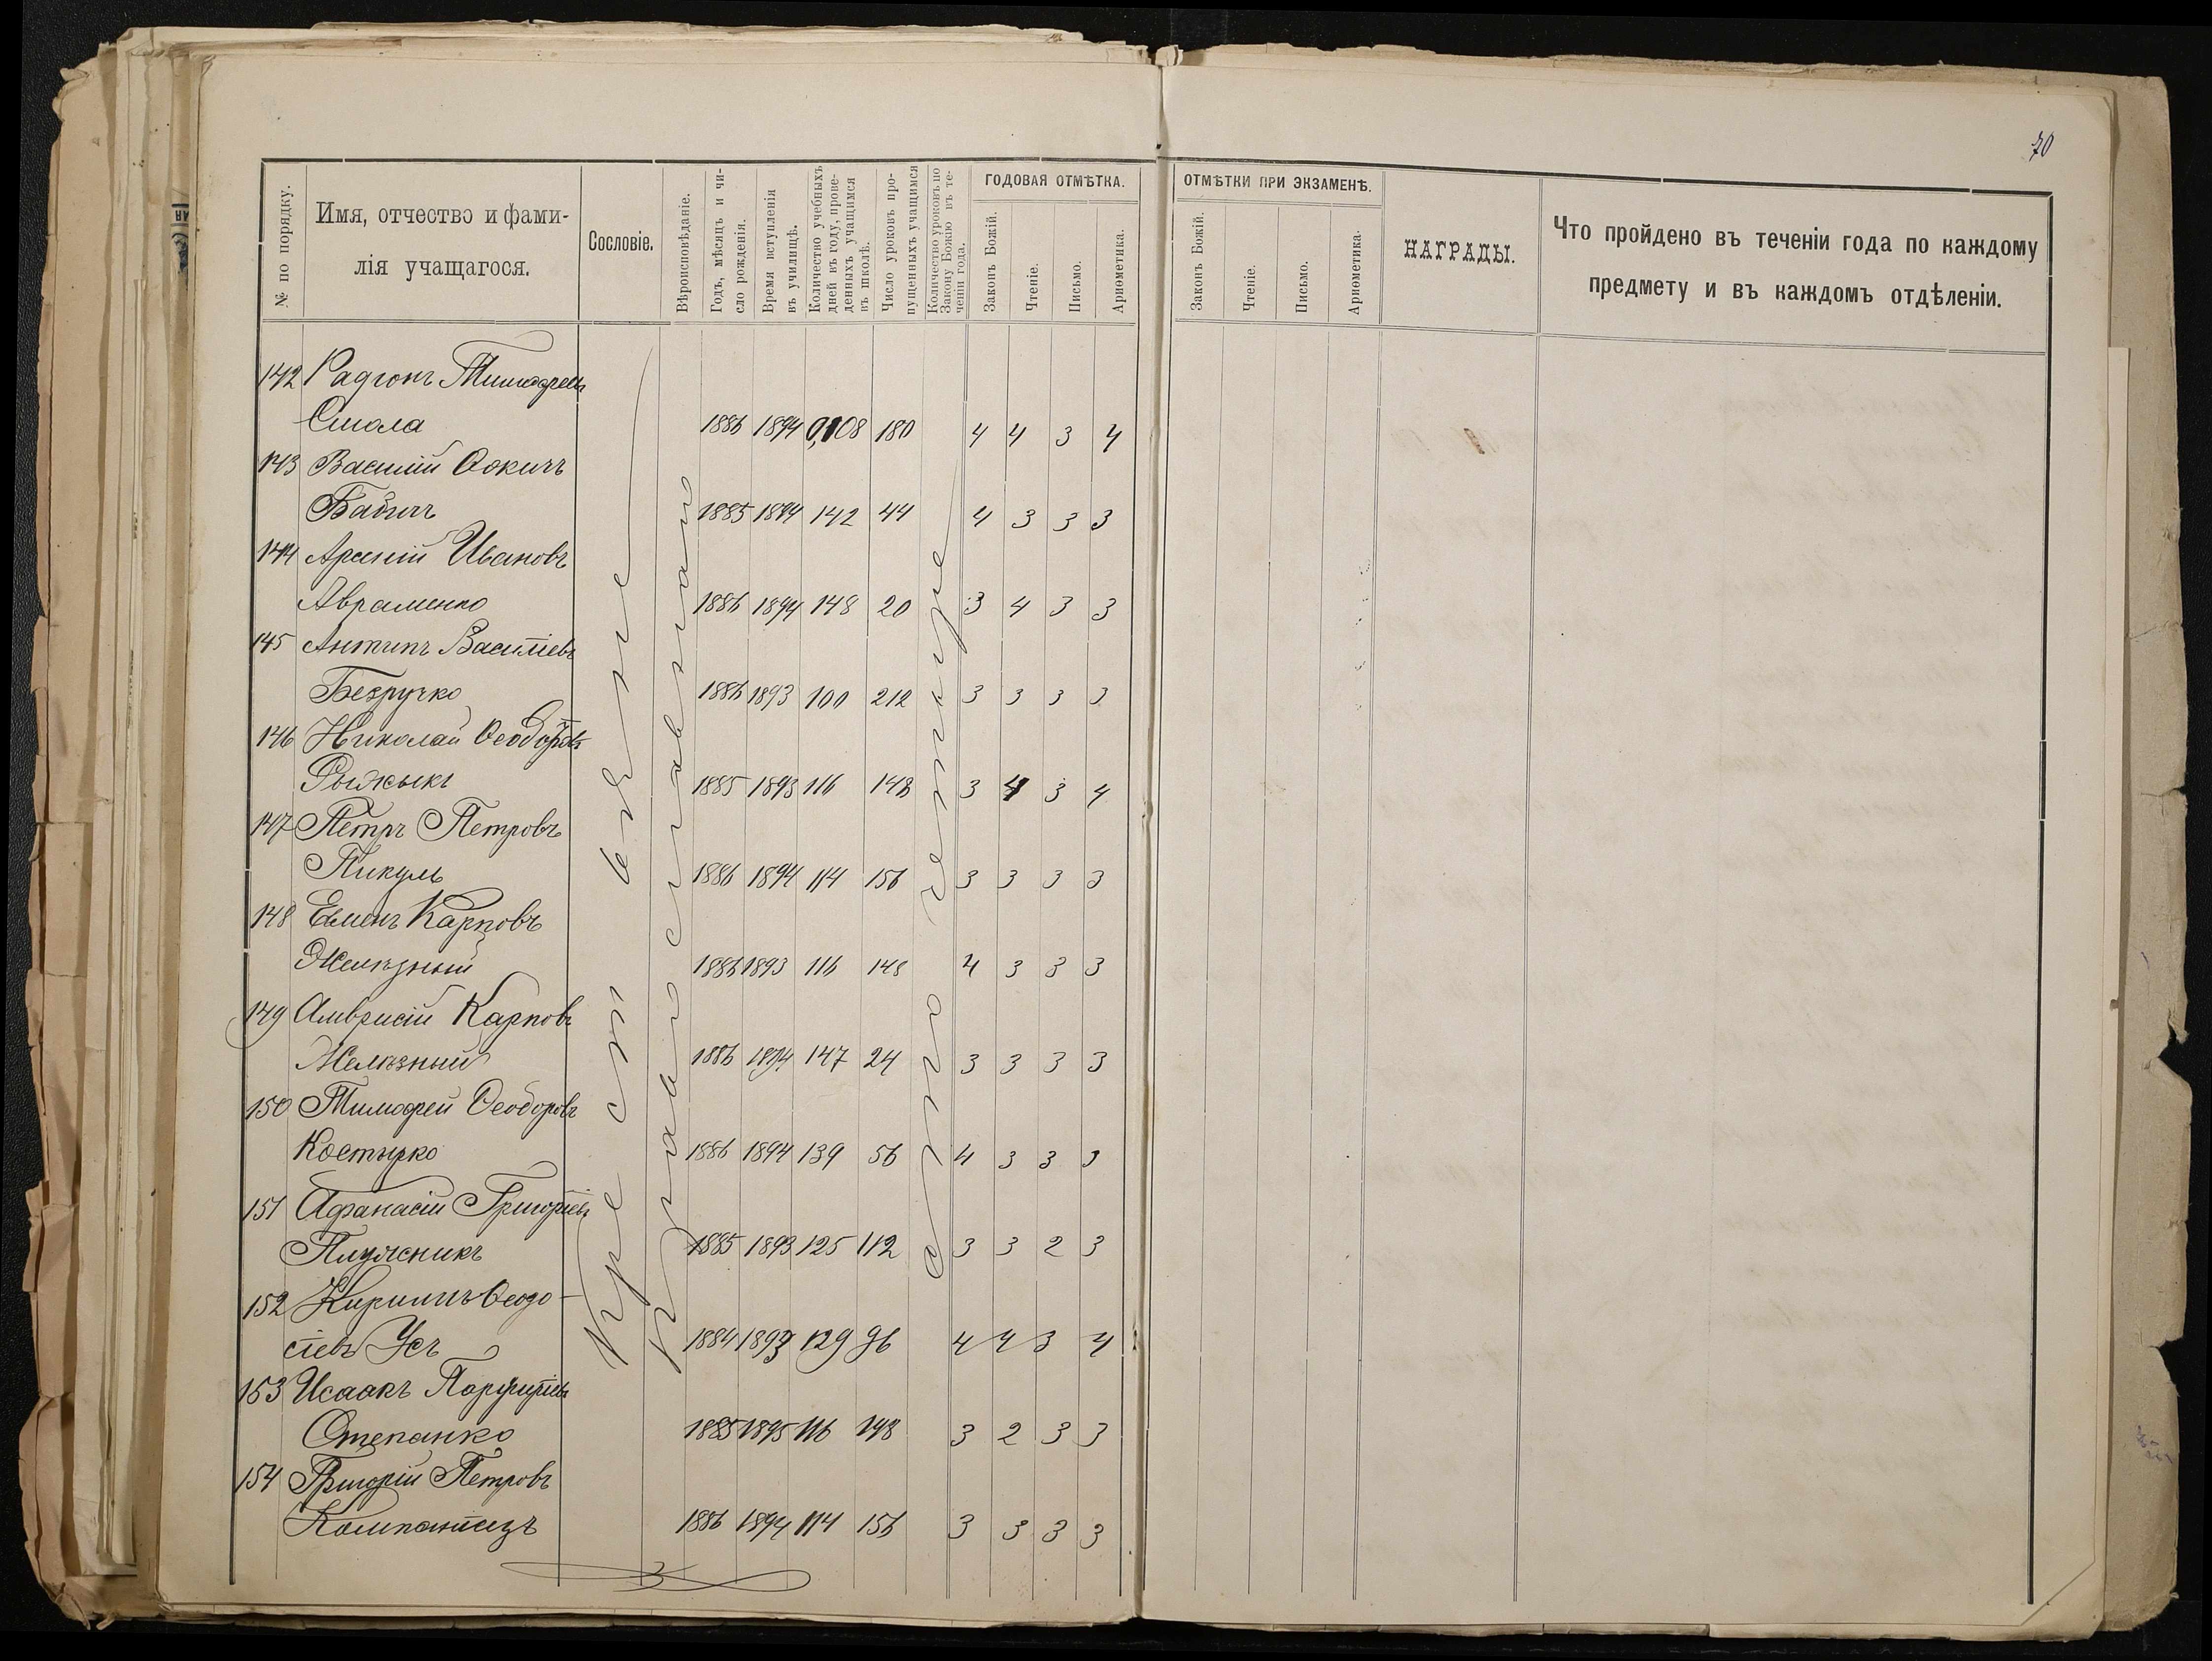 70
№ по порядку.
Имя, отчество и фами-
лія учащагося.
Сословіе.
Вѣроисповѣданіе.
Годъ, мѣсяцъ и чи-
сло рожденія.
Время вступленія
въ училищѣ.
Количество учебныхъ
дней въ году, прове-
денныхъ учащимся
въ школѣ.
Число уроковъ про-
пущенныхъ учащимся
Количество уроковъ по
Закону Божію въ те-
ченіи года.
ГОДОВАЯ ОТМѢТКА.
Законъ Божій.
Чтеніе.
Письмо.
Ариѳметика.
ОТМѢТКИ ПРИ ЭКЗАМЕНѢ.
Законъ Божій.
Чтеніе.
Письмо.
Ариѳметика.
НАГРАДЫ.
Что пройдено въ теченіи года по каждому
предмету и въ каждомъ отдѣленіи.
Крестьяне
Православнаго
сто четыре
142 Радіонъ
Смола 1886 1894 108 180 4 4 3 4
143 Василій
Бабичъ 1885 1894 142 44 4 3 3 3
144 Арсеній Ивановъ
Авраменко 1886 1894 148 20 3 4 3 3
145 Антипъ Василіевъ
Безручко 1886 1893 100 212 3 3 3 3
146 Николай Ѳеодоровъ
Рыжыкъ 1885 1893 116 148 3 4 3 4
147 Петръ Петровъ
Пикуль 1886 1894 114 156 3 3 3 3
148 Карповъ
Желѣзный 1886 1893 116 148 4 3 3 3
149 Амвросій Карповъ
Желѣзный 1886 1894 147 24 3 3 3 3
150 Тимофей Ѳеодоровъ
Костырко 1886 1894 139 56 4 3 3 3
151 Афанасій Григоріевъ
Плужникъ 1885 1893 125 112 3 3 2 3
152 Кириллъ Ѳеодо-
сіевъ Усъ 1884 1893 129 96 4 4 3 4
153 Исаакъ Порфиріевъ
Степанко 1885 1893 116 148 3 2 3 3
154 Григорій Петровъ
Компаніецъ 1886 1894 114 156 3 3 3 3